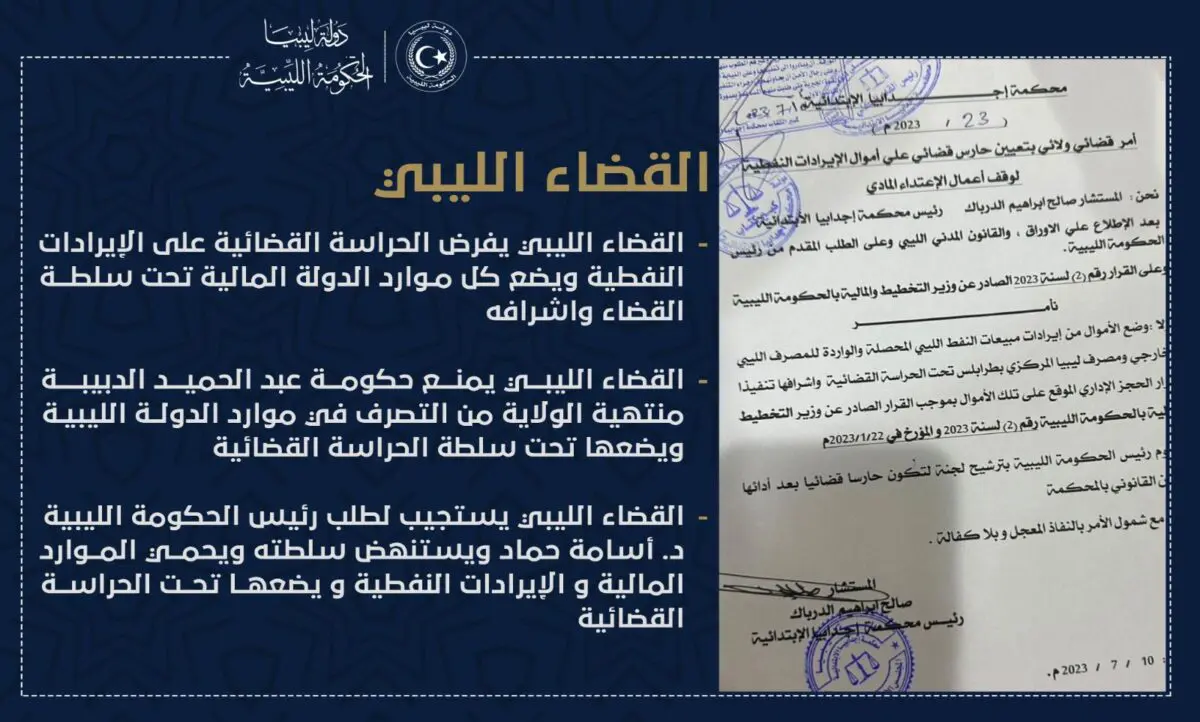 دولة ليبيا
الحكومة الليبية
دولة ليبيا
الحكومة الليبية
القضاء الليبي
- القضاء الليبي يفرض الحراسة القضائية على الإيرادات
النفطية ويضع كل موارد الدولة المالية تحت سلطة
القضاء واشرافه
- القضاء الليبي يمنع حكومة عبد الحميد الدبيبة
منتهية الولاية من التصرف في موارد الدولة الليبية
ويضعها تحت سلطة الحراسة القضائية
- القضاء الليبي يستجيب لطلب رئيس الحكومة الليبية
د. أسامة حماد ويستنهض سلطته ويحمي الموارد
المالية و الإيرادات النفطية و يضعها تحت الحراسة
القضائية
محكمة إجدابيا الإبتدائية
( 23 / 2023 م )
أمر قضائي ولائي بتعيين حارس قضائي علي أموال الإيرادات النفطية
لوقف أعمال الإعتداء المادي
نحن : المستشار صالح ابراهيم الدرباك رئيس محكمة إجدابيا الابتدائية
بعد الإطلاع علي الاوراق ، والقانون المدني الليبي وعلى الطلب المقدم من رئيس
الحكومة الليبية .
وعلى القرار رقم (2) لسنة 2023 الصادر عن وزير التخطيط والمالية بالحكومة الليبية
نأمـــر
لا :وضع الأموال من إيرادات مبيعات النفط الليبي المحصلة والواردة للمصرف الليبي
خارجي ومصرف ليبيا المركزي بطرابلس تحت الحراسة القضائية واشرافها تنفيذا
رار الحجز الإداري الموقع على تلك الأموال بموجب القرار الصادر عن وزير التخطيط
لية بالحكومة الليبية رقم (2) لسنة 2023 و المؤرخ في 2023/1/22م
وم رئيس الحكومة الليبية بترشيح لجنة لتكون حارسا قضائيا بعد أدائها
ن القانوني بالمحكمة
مع شمول الأمر بالنفاذ المعجل و بلا كفالة .
المستشار
صالح ابراهيم الدرباك
رئيس محكمة إجدابيا الإبتدائية
: 10 / 7 / 2023 م.